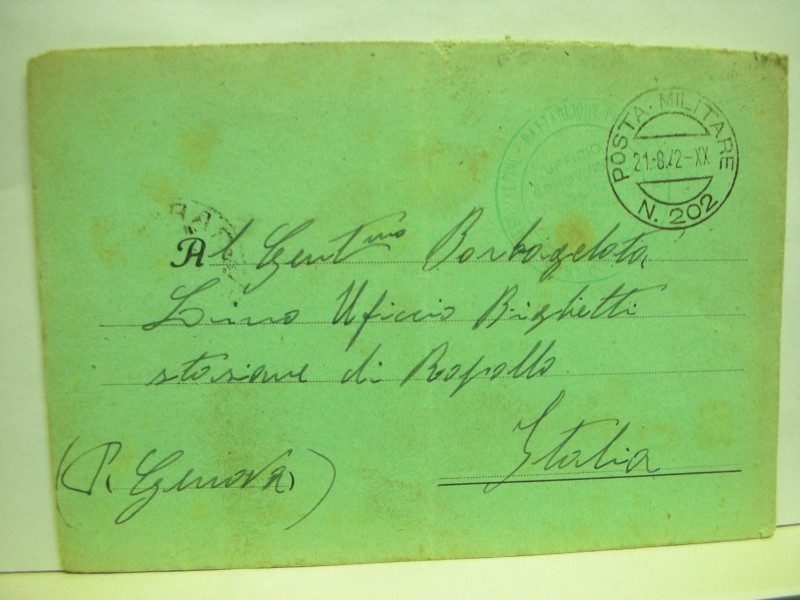 POSTA MILITARE
21-8.42-XX
N. 202
BATTAGLIONE
UFFICIO
Al Gentmo Barbagelata
Lino Uficio Biglietti
stasione di Rapallo
Italia
(P. Genova)